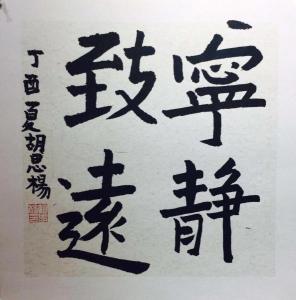 寧静
致遠
丁酉夏胡思楊